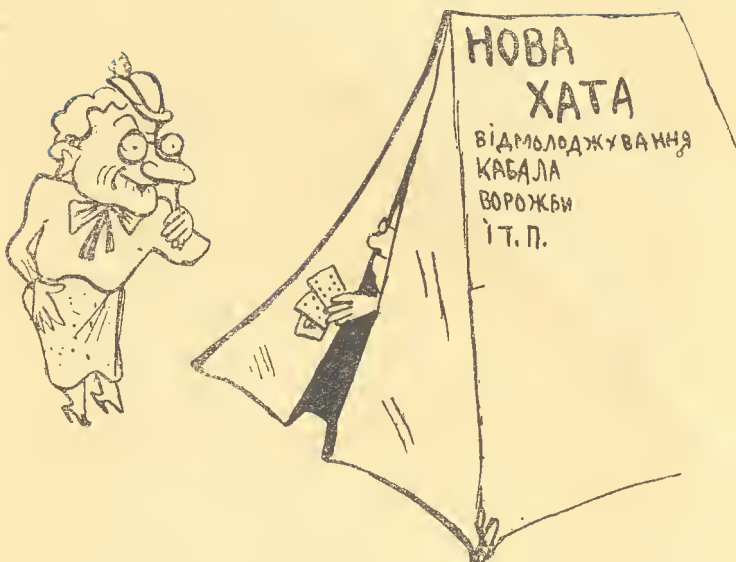 НОВА
ХАТА
ВІДМОЛОДЖУВАННЯ
КАБАЛА
ВОРОЖБИ
і Т.П.